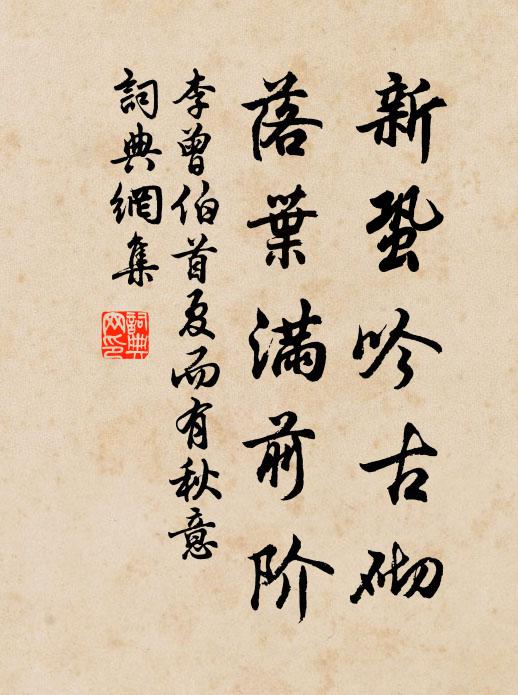 新蛩吟古砌
落葉滿前阶
李曾伯首夏而有秋意
詞典網集
詞典網印